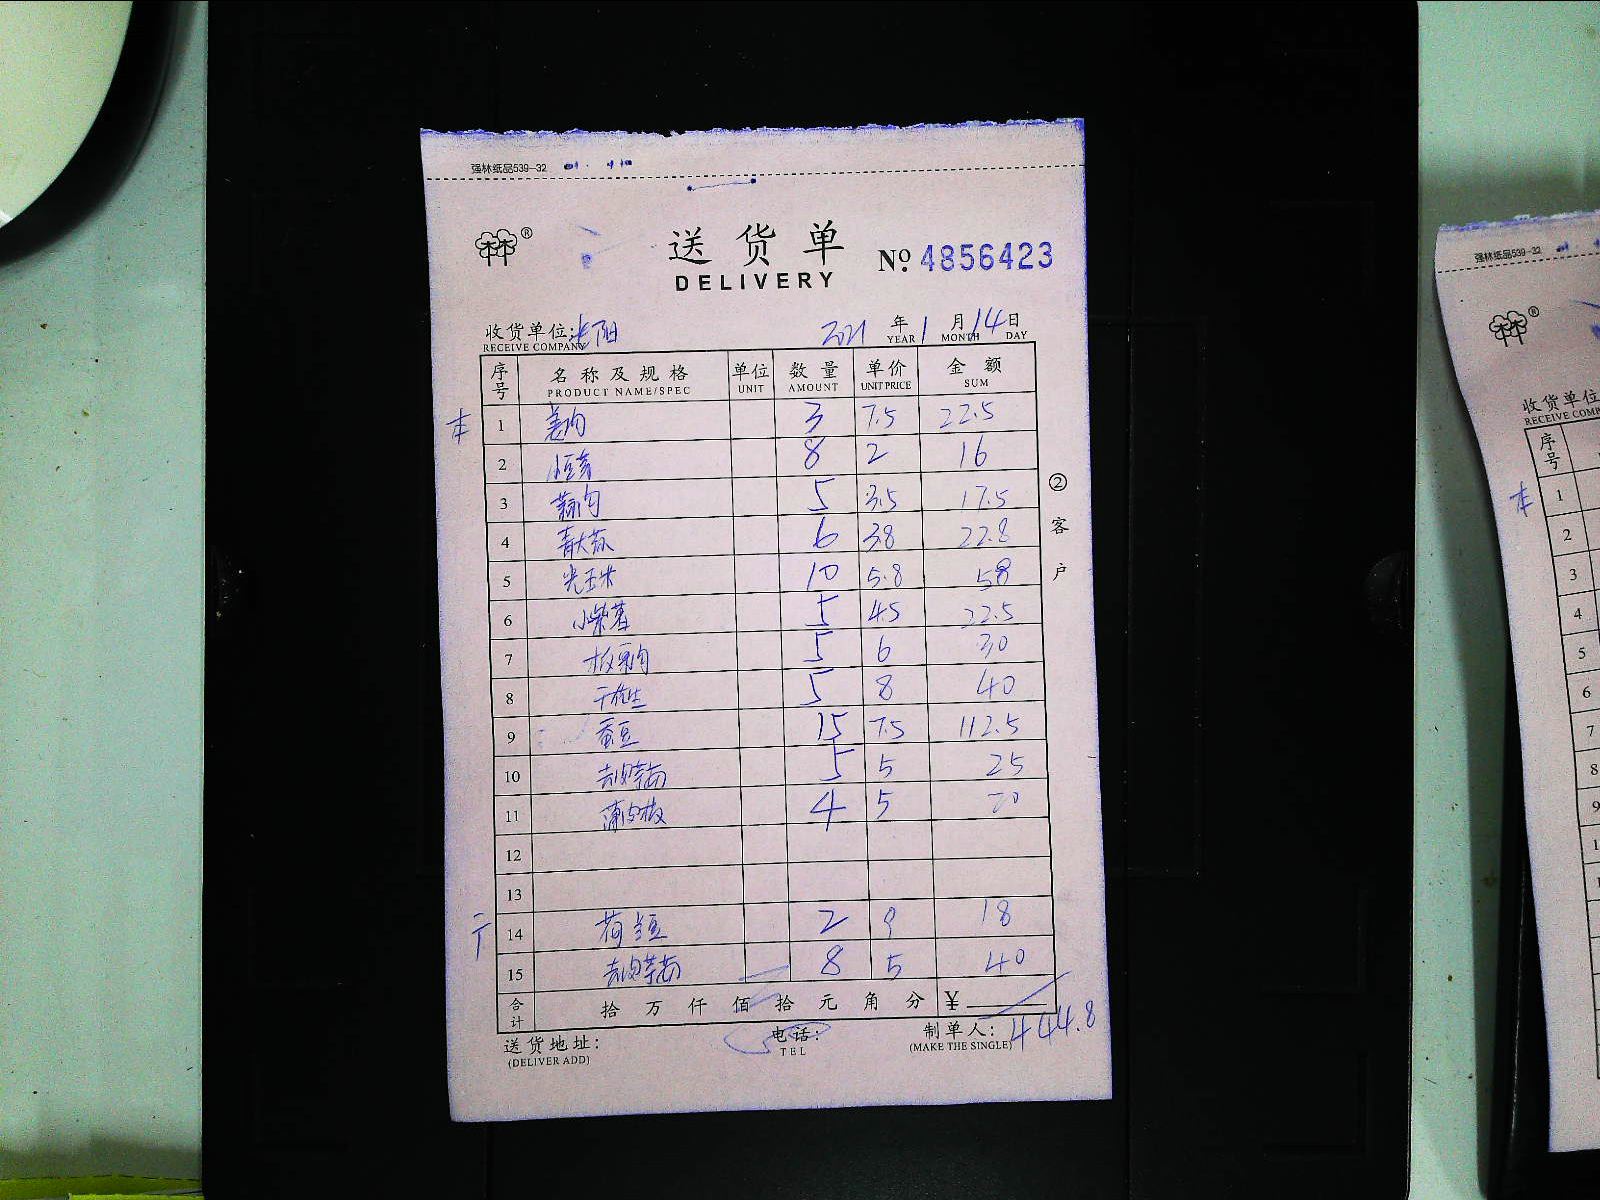 强林纸品539-32
林®
送货单
DELIVERY
No. 4856423
收货单位:
RECEIVE COMPANY
2021 年 1 月 14 日
YEAR MONTH DAY
序号 名称及规格 单位 数量 单价 金额
PRODUCT NAME/SPEC UNIT AMOUNT UNIT PRICE SUM
1 姜肉 3 7.5 22.5
2 8 2 16
3 蒜肉 5 3.5 17.5
4 青大 6 38 22.8
5 光玉米 10 5.8 58
6 小紫薯 5 4.5 22.5
7 板栗肉 5 6 30
8 干花生 5 8 40
9 蚕豆 15 7.5 112.5
10 去皮莴 5 5 25
11 4 5 20
12
13
14 荷兰豆 2 9 18
15 去皮莴 8 5 40
合计 拾 万 仟 佰 拾 元 角 分 ¥
444.8
送货地址: 电话: 制单人:
(DELIVER ADD) TEL (MAKE THE SINGLE)
②客户
强林纸品539-32
®
收货单位
RECEIVE COMP
序号
1
2
3
4
5
6
7
8
9